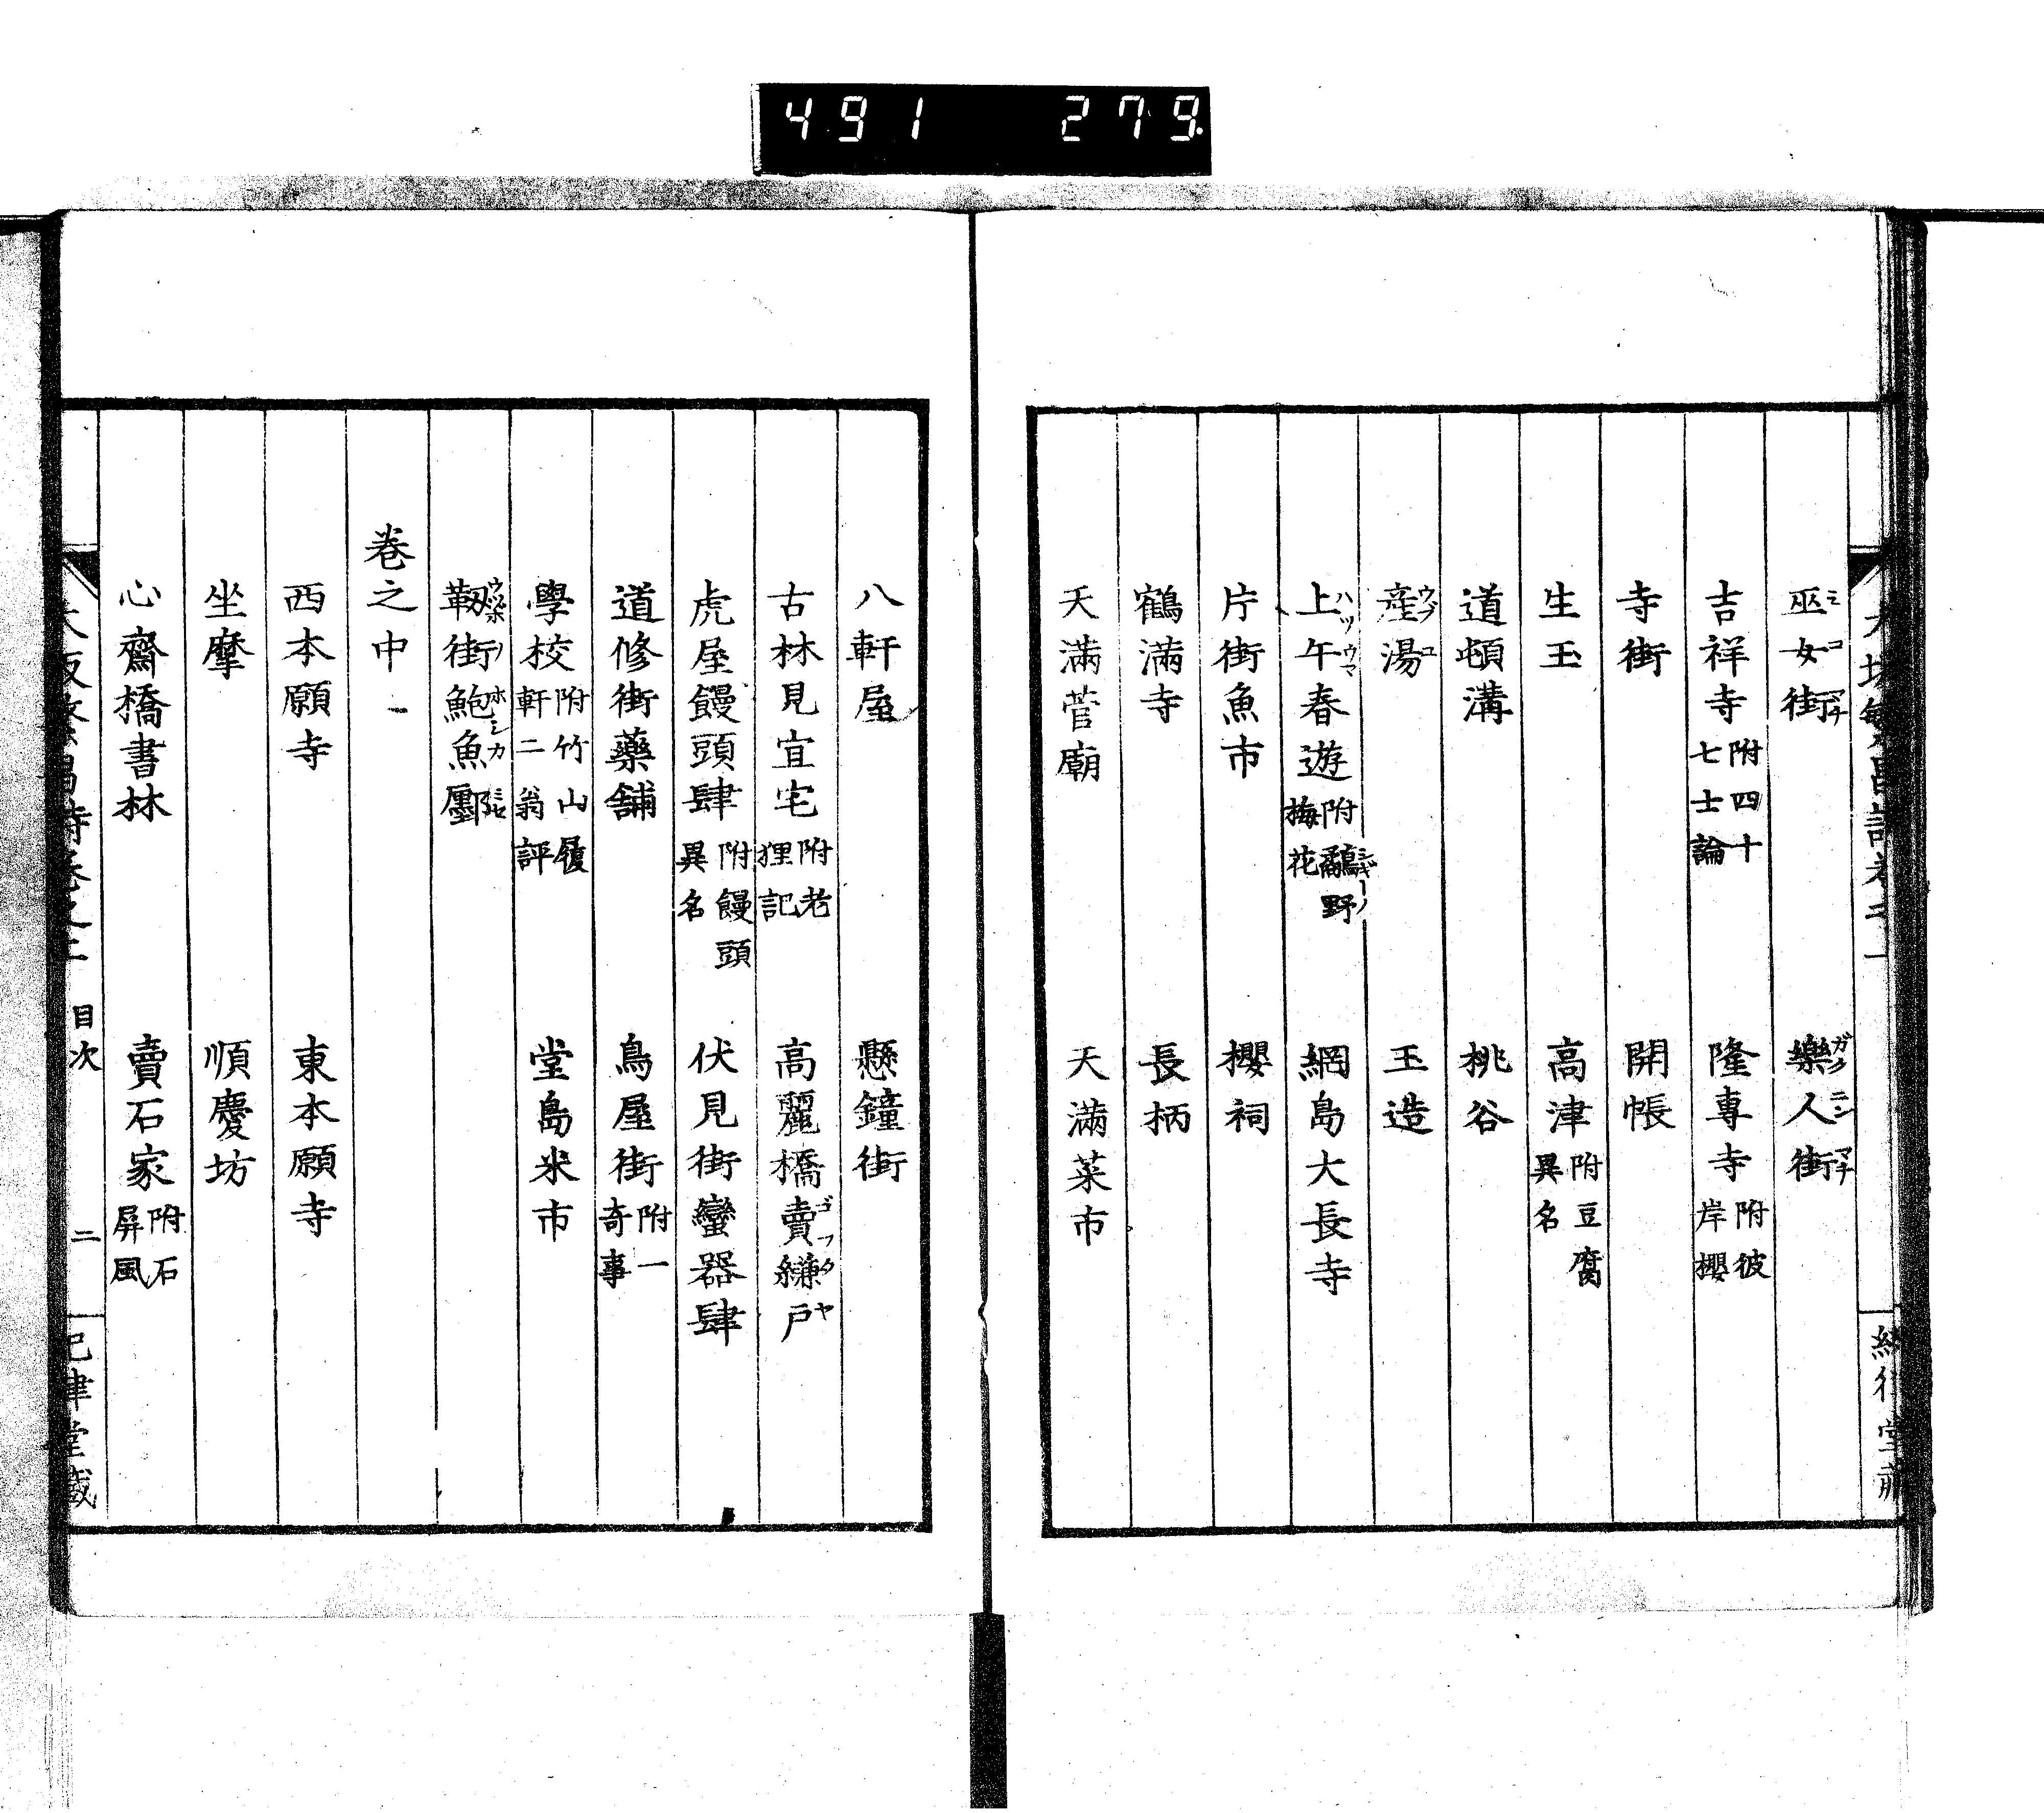 491 279
巫女街 樂人街
吉祥寺 附四十七士論 隆專寺 附彼岸櫻
寺街 開帳
生玉 高津 附豆腐異名
道頓溝 桃谷
產湯 玉造
上午春遊 附鷸野梅花 網島大長寺
片街魚市 櫻祠
鶴滿寺 長柄
天滿菅廟 天滿菜市
八軒屋 懸鐘街
古林見宜宅 附老狸記 高麗橋賣縑戶
虎屋饅頭肆 附饅頭異名 伏見街蠻器肆
道修街藥舖 鳥屋街 附一奇事
學校 附竹山履軒二翁評 堂島米市
靱街鮑魚廛
卷之中
西本願寺 東本願寺
坐摩 順慶坊
心齋橋書林 賣石家 附石屏風
目次 二